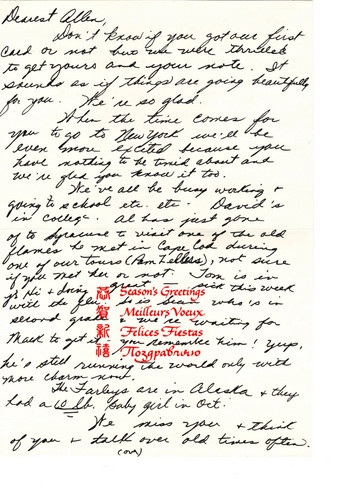 Dearest Allen,
Don't know if you got our first
card or not but we were thrilled
to get yours and your note. It
sounds as if things are going beautifully
for you. We're so glad.
When the time comes for
you to go to New York we'll be
even more excited because you
have nothing to be timid about and
we're glad you know it too.
We've all be busy working +
going to school etc. etc. David's
in College. Al has just gone
of to Syracuse to visit one of the old
flames he met in Cape Cod during
one of our tours (Pam Zellers), not sure
if you met her or not. Tom is in
Jr Hi + doing great, sick this week
with the flu. So is Sean who's in
second grade + we're waiting for
Mark to get it you remember him! Yups,
he's still running the world only with
more charm now.
恭賀新禧
Season's Greetings
Meilleurs Voeux
Felices Fiestas
Поздравляю
The Farleys are in Alaska + they
had a 10 lb. baby girl in Oct.
We miss you + think
of you + talk over old times often.
(over)